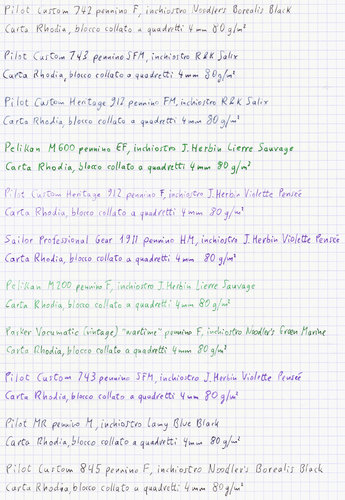 Pilot Custom 742 pennino F, inchiostro Noodler's Borealis Black
Carta Rhodia, blocco collato a quadretti 4mm 80g/m²
Pilot Custom 743 pennino SFM, inchiostro R&K Salix
Carta Rhodia, blocco collato a quadretti 4mm 80g/m²
Pilot Custom Heritage 912 pennino FM, inchiostro R&K Salix
Carta Rhodia, blocco collato a quadretti 4mm 80g/m²
Pelikan M600 pennino EF, inchiostro J. Herbin Lierre Sauvage
Carta Rhodia, blocco collato a quadretti 4mm 80g/m²
Pilot Custom Heritage 912 pennino F, inchiostro J. Herbin Violette Pensée
Carta Rhodia, blocco collato a quadretti 4mm 80g/m²
Sailor Professional Gear 1911 pennino HM, inchiostro J. Herbin Violette Pensée
Carta Rhodia, blocco collato a quadretti 4mm 80g/m²
Pelikan M200 pennino F, inchiostro J. Herbin Lierre Sauvage
Carta Rhodia, blocco collato a quadretti 4mm 80g/m²
Parker Vacumatic (vintage) "wartime" pennino F, inchiostro Noodler's Green Marine
Carta Rhodia, blocco collato a quadretti 4mm 80g/m²
Pilot Custom 743 pennino SFM, inchiostro J. Herbin Violette Pensée
Carta Rhodia, blocco collato a quadretti 4mm 80g/m²
Pilot MR pennino M, inchiostro Lamy Blue Black
Carta Rhodia, blocco collato a quadretti 4mm 80g/m²
Pilot Custom 845 pennino F, inchiostro Noodler's Borealis Black
Carta Rhodia, blocco collato a quadretti 4mm 80g/m²